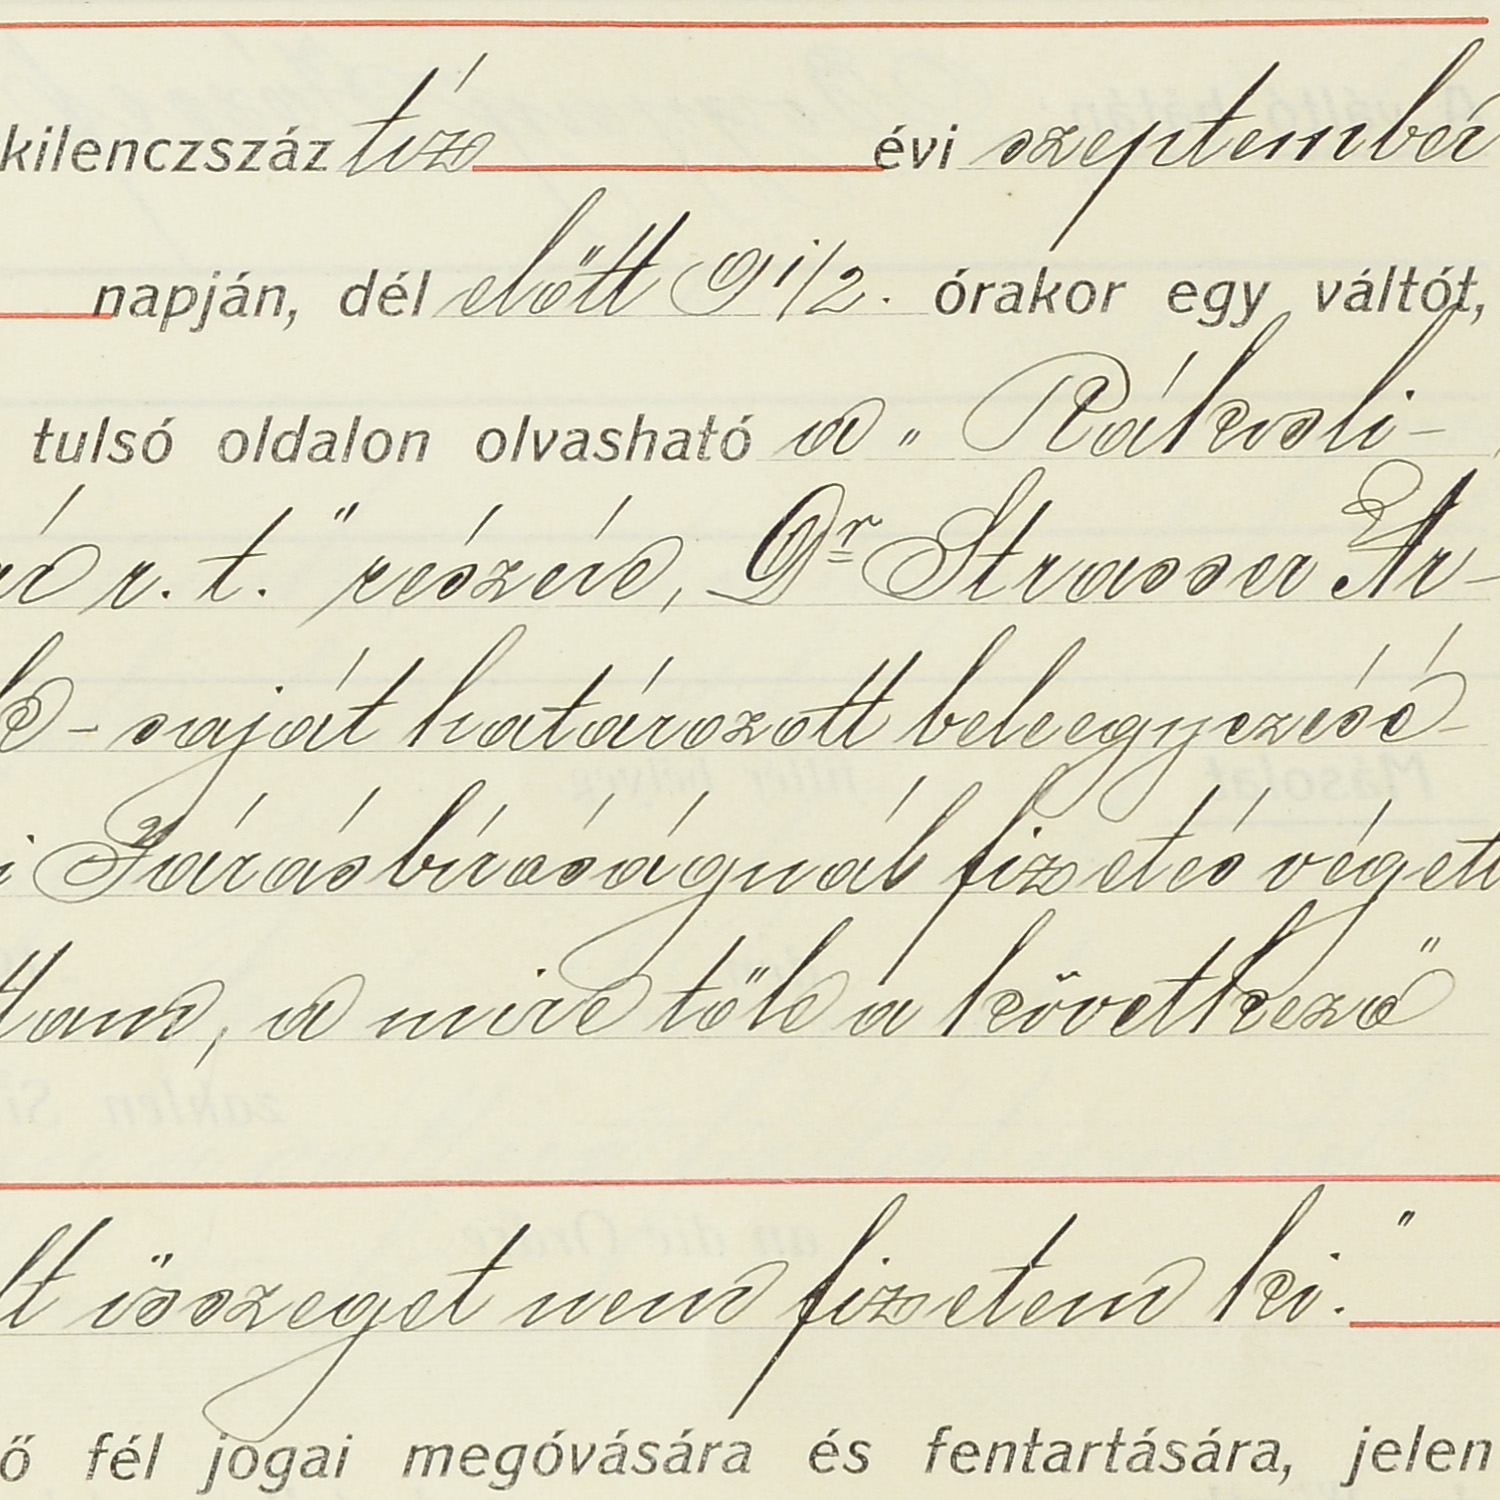 kilenczszáz tíz évi szeptember
napján, dél előtt 9 1/2. órakor egy váltót,
tulsó oldalon olvasható a „Rákosli-
r. t." részére, Dr Strasser Ár-
saját határozott beleegyezésé-
i Járásbíróságnál fizetés végett
ttam, a mire tőle a következő
lt összeget nem fizetem ki."
ő fél jogai megóvására és fentartására, jelen